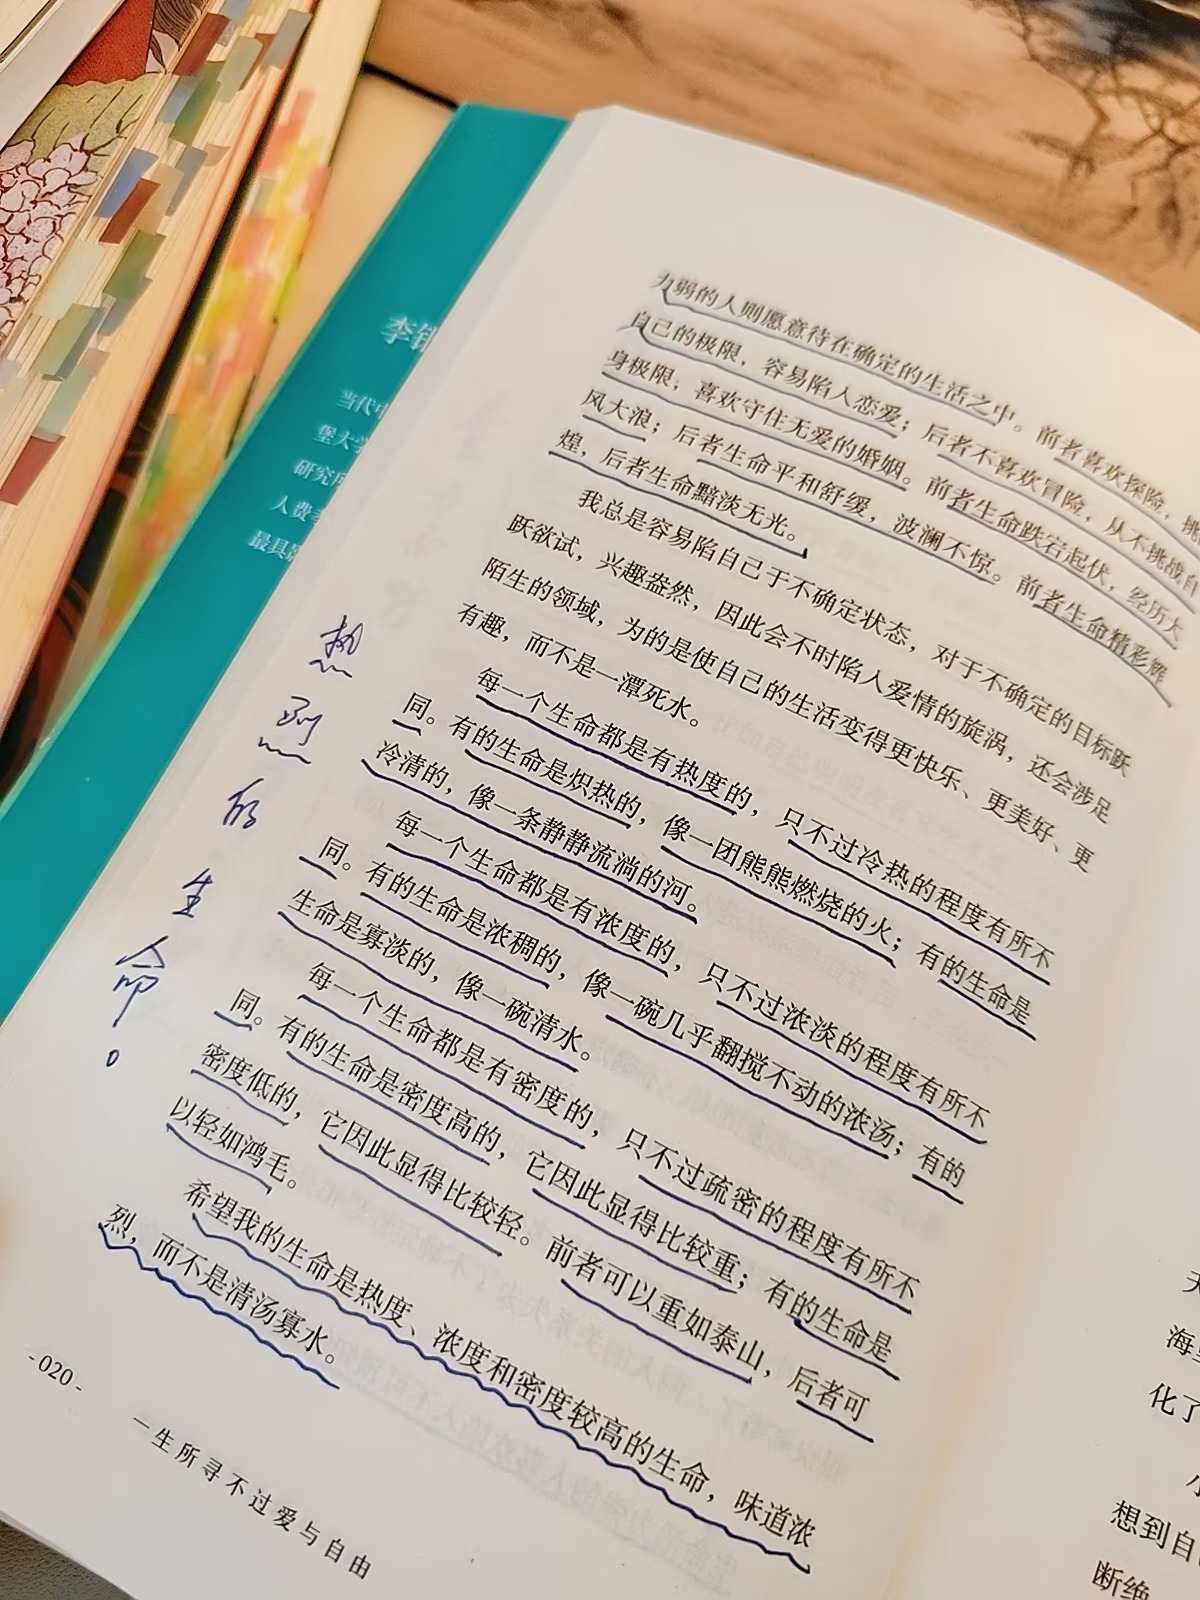 李银
当代中
堡大学
研究所
人费孝
最具影
力弱的人则愿意待在确定的生活之中。前者喜欢探险，挑
自己的极限，容易陷入恋爱；后者不喜欢冒险，从不挑战自
身极限，喜欢守住无爱的婚姻。前者生命跌宕起伏，经历大
风大浪；后者生命平和舒缓，波澜不惊。前者生命精彩辉
煌，后者生命黯淡无光。
我总是容易陷自己于不确定状态，对于不确定的目标跃
跃欲试，兴趣盎然，因此会不时陷入爱情的旋涡，还会涉足
陌生的领域，为的是使自己的生活变得更快乐、更美好、更
有趣，而不是一潭死水。
每一个生命都是有热度的，只不过冷热的程度有所不
同。有的生命是炽热的，像一团熊熊燃烧的火；有的生命是
冷清的，像一条静静流淌的河。
每一个生命都是有浓度的，只不过浓淡的程度有所不
同。有的生命是浓稠的，像一碗几乎翻搅不动的浓汤；有的
生命是寡淡的，像一碗清水。
每一个生命都是有密度的，只不过疏密的程度有所不
同。有的生命是密度高的，它因此显得比较重；有的生命是
密度低的，它因此显得比较轻。前者可以重如泰山，后者可
以轻如鸿毛。
希望我的生命是热度、浓度和密度较高的生命，味道浓
烈，而不是清汤寡水。
热烈的生命。
-020-
一生所寻不过爱与自由
海
化了
想到自
断绝